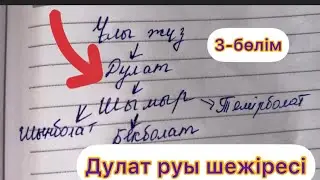 Ұлы жүз
3-бөлім
Дулат
Шымыр → Темірболат
Шынболат Бекболат
Дулат руы шежіресі